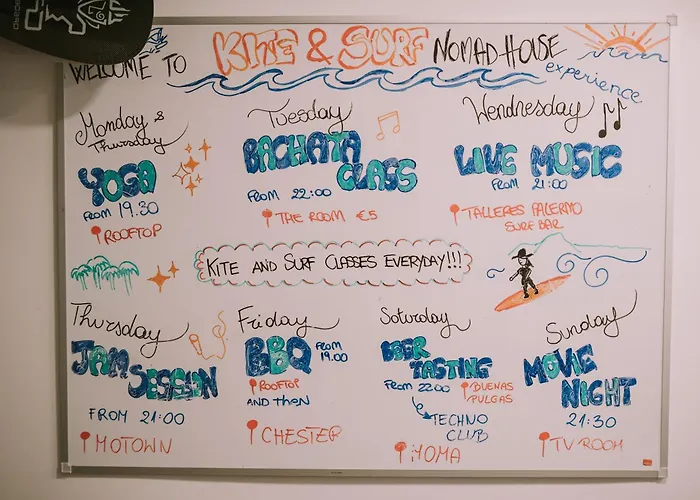 WELCOME TO KITE & SURF NOMAD HOUSE
experience
Monday &
Thursday
YOGA
FROM 19.30
ROOFTOP
Tuesday
BACHATA
CLASS
FROM 22:00
THE ROOM €5
Wendnesday
LIVE MUSIC
FROM 21:00
TALLERES PALERMO
SURF BAR
KITE AND SURF CLASSES EVERYDAY!!!
Thursday
JAM
SESSION
FROM 21:00
MOTOWN
Friday
BBQ FROM
19.00
ROOFTOP
AND THEN
CHESTER
Saturday
BEER
TASTING
FROM 22:00
BUENAS
PULGAS
TECHNO
CLUB
MOMA
Sunday
MOVIE
NIGHT
21:30
TV ROOM